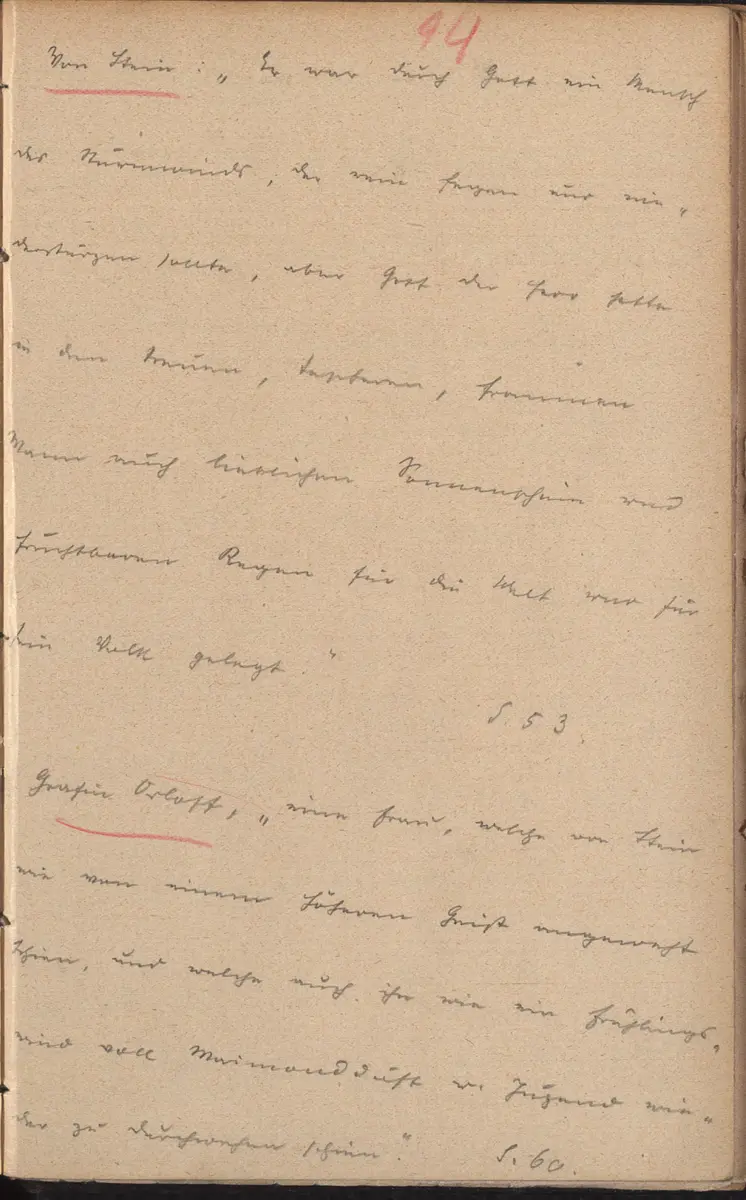 94
Von Stein: „Er war durch Gott ein Mensch
des Sturmwinds, der rein fegen und nie„
derstürzen sollte, aber Gott der Herr hatte
in den treuen, tapferen, frommen
Mann auch lieblichen Sonnenschein und
fruchtbaren Regen für die Welt und für
sein Volk gelegt."
S. 53.
Gräfin Orloff, „eine Frau, welche von Stein
wie von einem höheren Geist angeweht
schien, und welche auch ihn wie ein Frühlings„
wind voll Maimondduft u. Jugend wie„
der zu durchwehen schien."
S. 60.